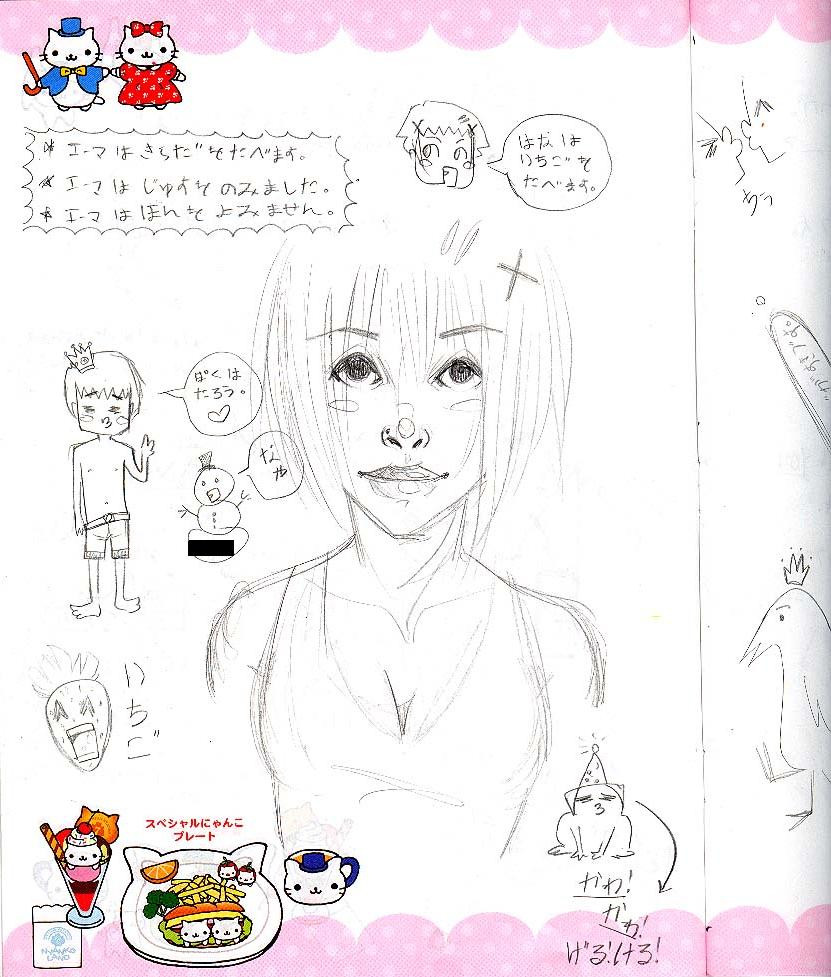 * エーマ は さらだを たべます。
* エーマ は じゅすを のみました。
* エーマ は ほんを よみません。
はなは
いちごを
たべます。
ぼくは
たろう。
いちご
スペシャルにゃんこ
プレート
NYANKO
LAND
かわ!
かわ!
げる!ける!